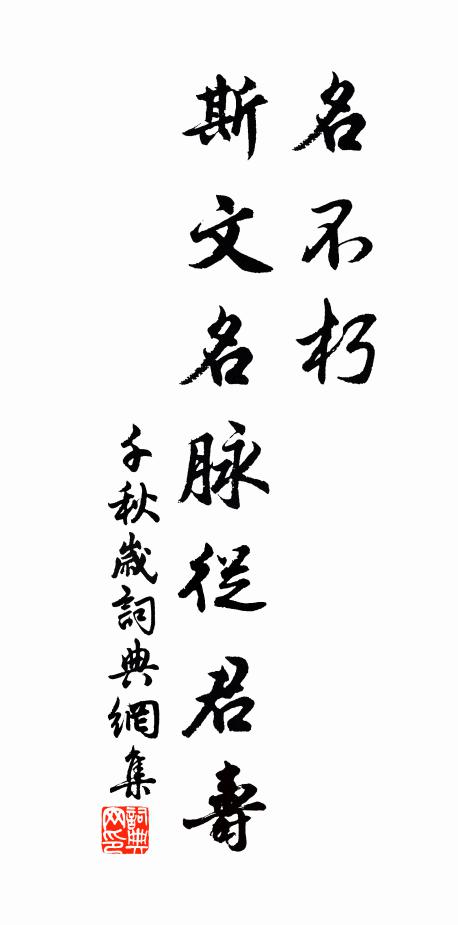 名不朽
斯文名脉從君壽
千秋歲詞典網集
詞典网印